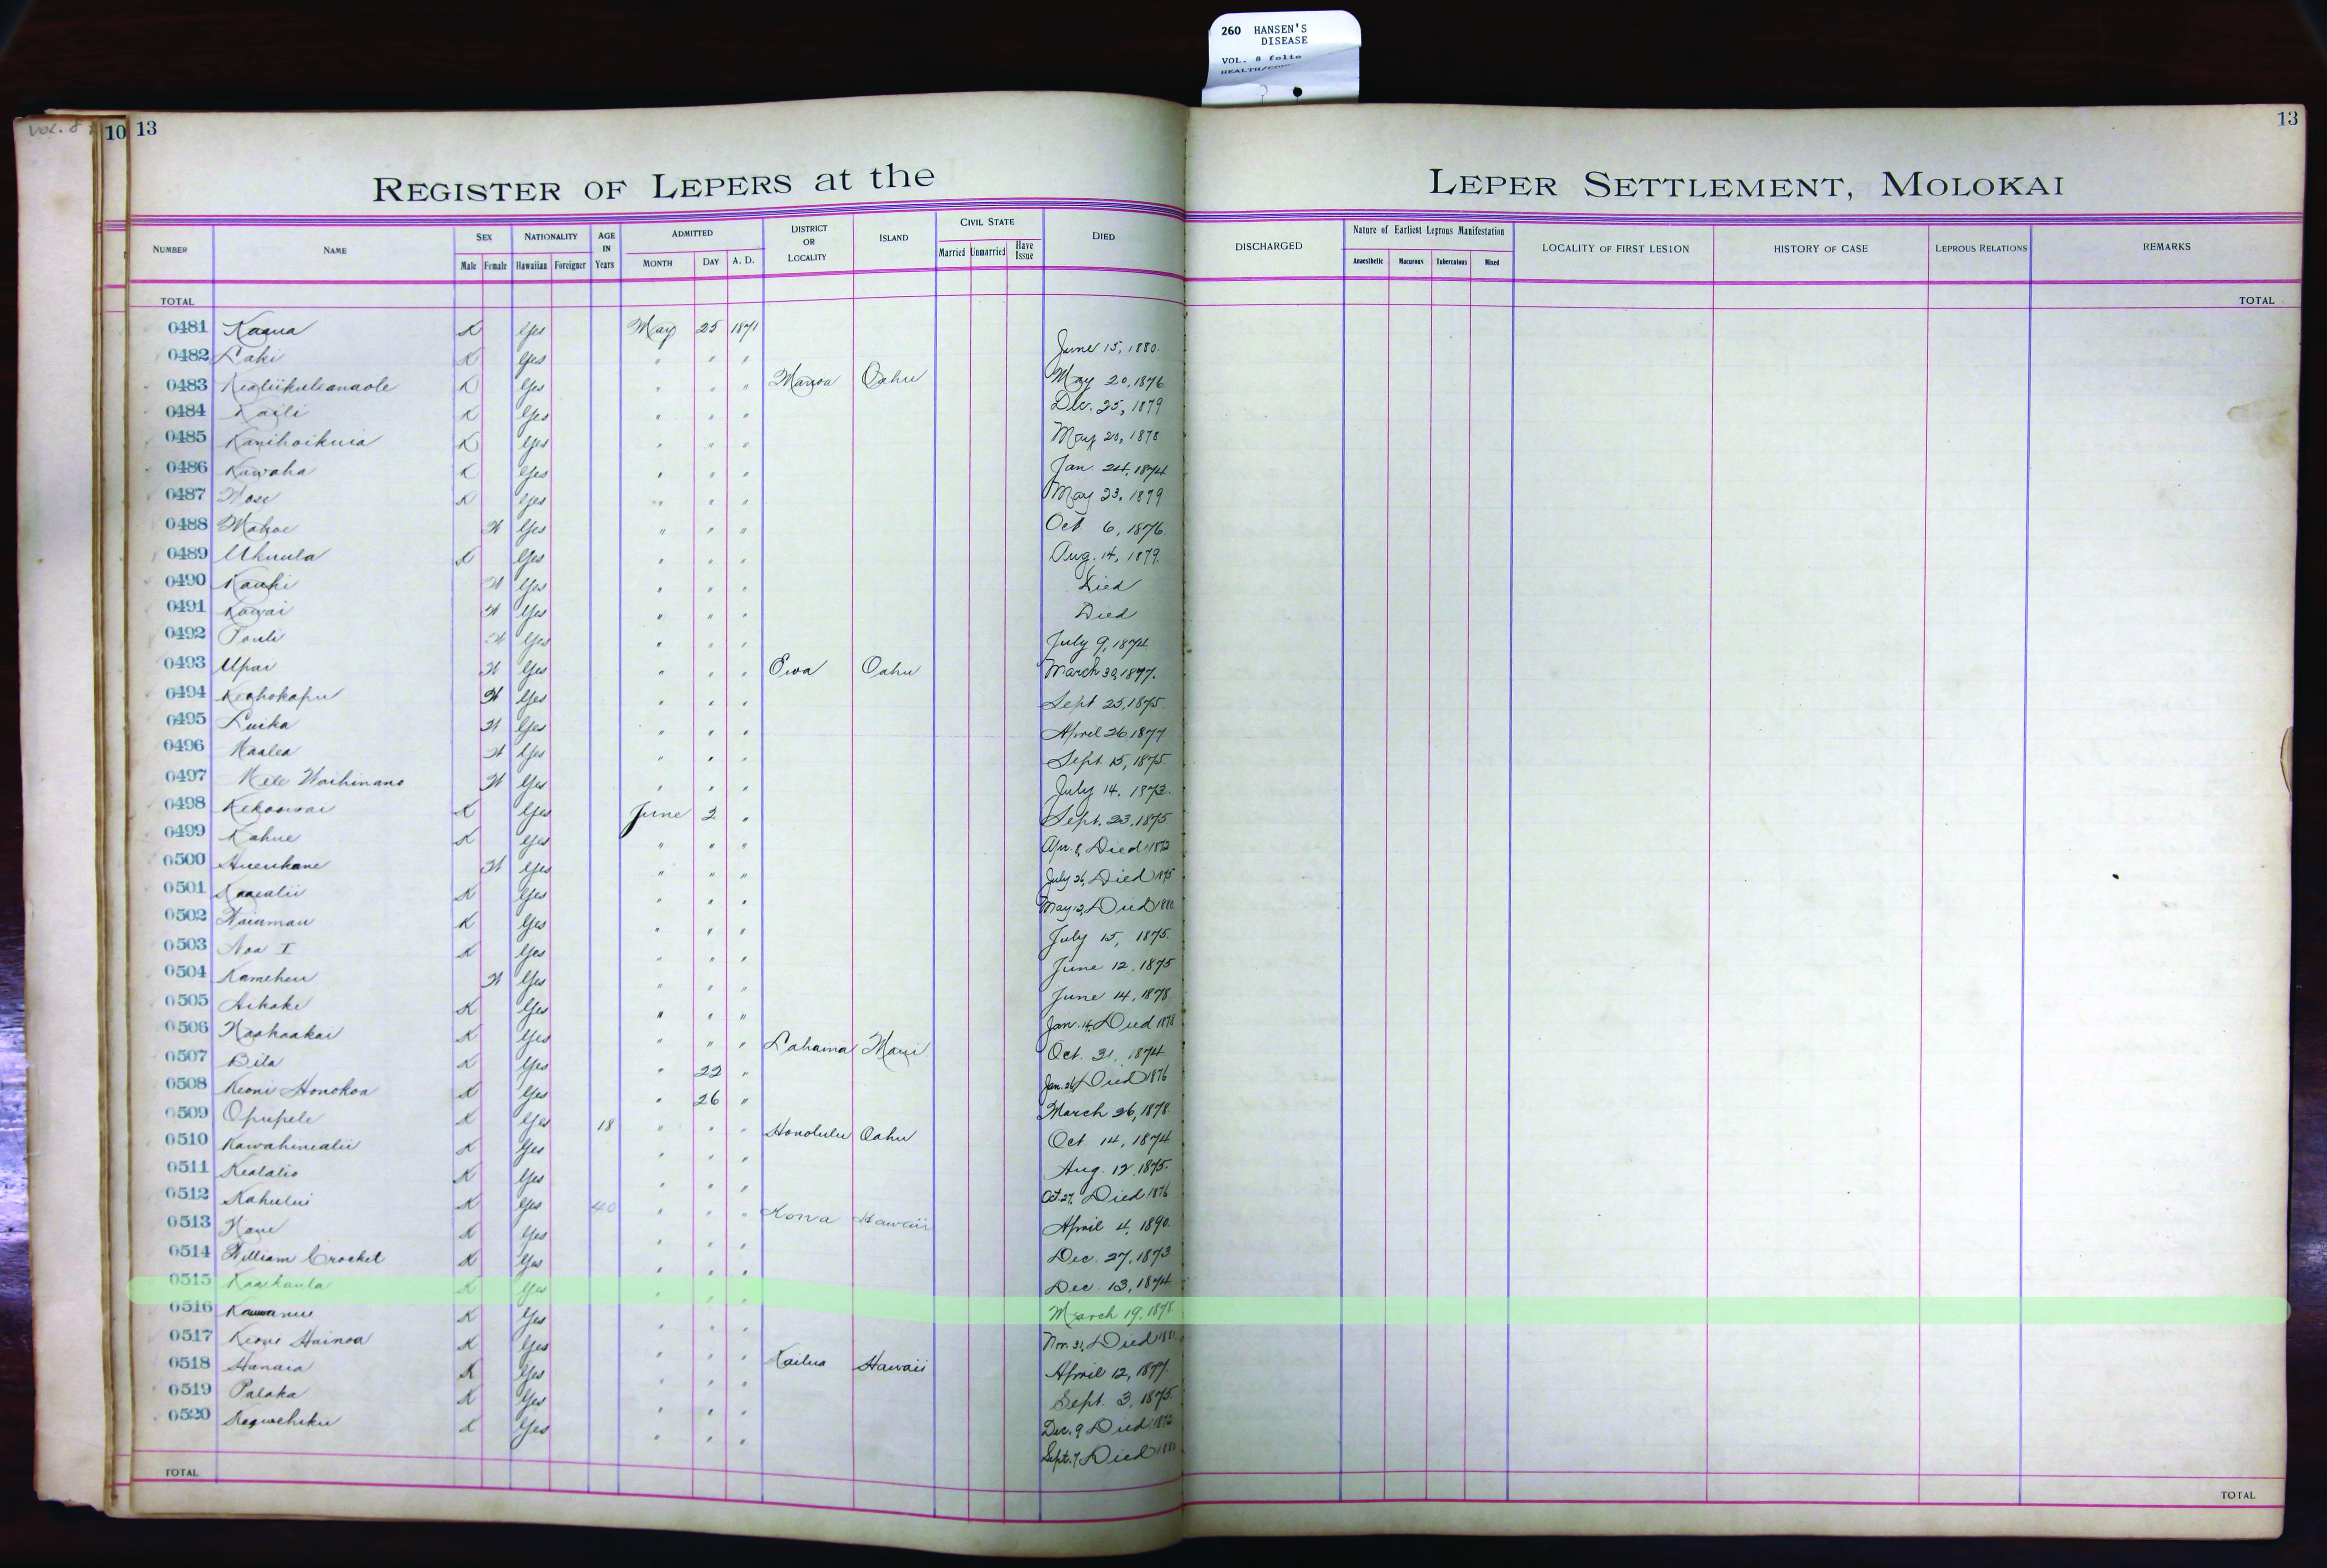 260 HANSEN'S
DISEASE
VOL. 8 folio
VOL. 8
10 13
13
REGISTER OF LEPERS at the LEPER SETTLEMENT, MOLOKAI
NUMBER NAME SEX Male Female NATIONALITY Hawaiian Foreigner AGE IN Years ADMITTED MONTH DAY A. D. DISTRICT OR LOCALITY ISLAND CIVIL STATE Married Unmarried Have Issue DIED DISCHARGED Nature of Earliest Leprous Manifestation Anaesthetic Macurous Tuberculous Mixed LOCALITY OF FIRST LESION HISTORY OF CASE LEPROUS RELATIONS REMARKS
TOTAL TOTAL
0481 Kaaua K Yes May 25 1871
0482 Laki K Yes " " " June 15, 1880
0483 Kealiikuleanaole K Yes " " " Manoa Oahu May 20, 1876
0484 Kaili K Yes " " " Dec. 25, 1879
0485 Kanihoikuia K Yes " " " May 20, 1878
0486 Kawaha K Yes " " " Jan. 24, 1874
0487 K Yes " " " May 23, 1879
0488 Mahoe W Yes " " " Oct 6, 1876
0489 Ukuula K Yes " " " Aug. 14, 1879
0490 Kauhi W Yes " " " Died
0491 Kawai W Yes " " " Died
0492 W Yes " " " July 9, 1874
0493 Upai W Yes " " " Ewa Oahu March 30, 1877.
0494 Keohokapu W Yes " " " Sept 25, 1875.
0495 Luika W Yes " " " April 26 1877
0496 Kaalea W Yes " " " Sept. 15, 1875.
0497 Mele Waihinano W Yes " " " July 14, 1873.
0498 Kekoowai K Yes June 2 " Sept. 23, 1875
0499 Kahue K Yes " " " Apr. 8, Died 1872
0500 Hueukane W Yes " " " July 26, Died 1875
0501 K Yes " " " May 12, Died 1880
0502 Waiamau K Yes " " " July 15, 1875.
0503 Noa I K Yes " " " June 12, 1875
0504 Kameheu W Yes " " " June 14, 1878
0505 Aikake K Yes " " " Jan. 14, Died 1878
0506 Naahaakai K Yes " " " Lahaina Maui Oct. 31, 1874
0507 Bila K Yes " 22 " Jan. 26, Died 1876
0508 Keoni Honokoa K Yes " 26 " March 26, 1878
0509 Opupele K Yes 18 " " " Honolulu Oahu Oct 14, 1874
0510 Kawahinealii K Yes " " " Aug. 12, 1875.
0511 Kealalio K Yes " " " Oct. 27, Died 1876
0512 Kahului K Yes 40 " " " Kona Hawaii April 4, 1890.
0513 K Yes " " " Dec. 27, 1873
0514 William Crocket K Yes " " " Dec. 13, 1874
0515 Kaaikaula K Yes " " " March 19, 1878
0516 K Yes " " " Nov. 31, Died 1881
0517 Keoni Hainoa K Yes " " " Kailua Hawaii April 12, 1877.
0518 Hanaia K Yes " " " Sept. 3, 1875
0519 Palaka K Yes " " " Dec. 9 Died 1872
0520 K Yes " " " Sept. 7 Died 1880
TOTAL TOTAL